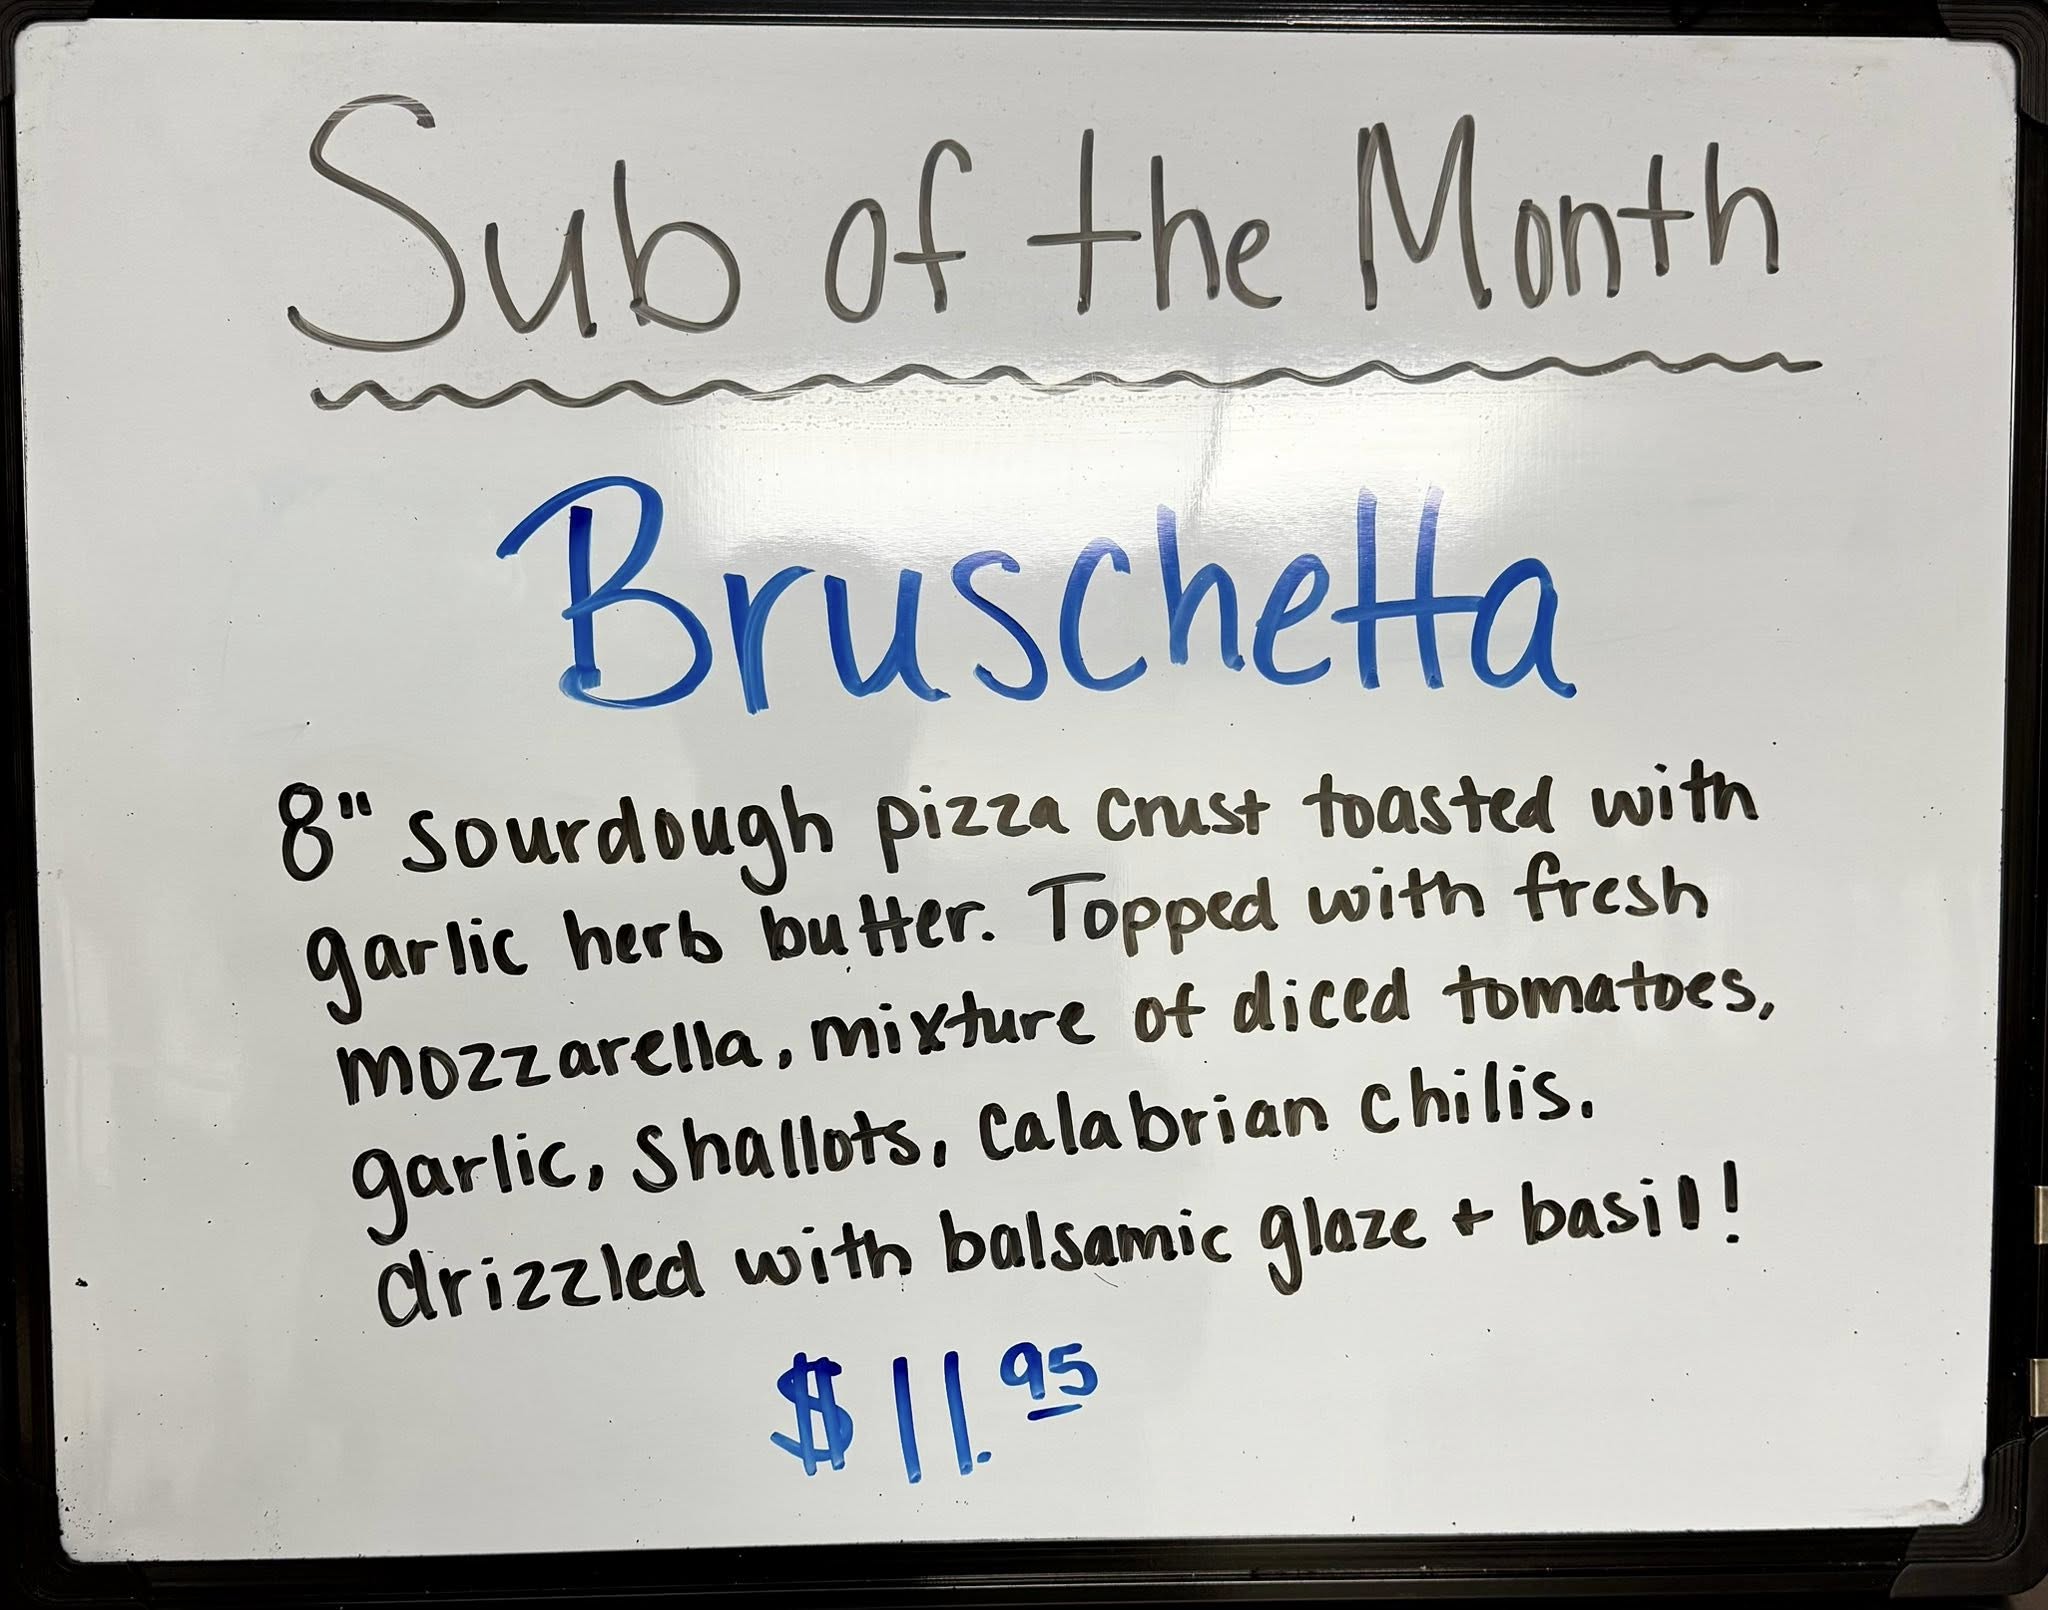 Sub of the Month
Bruschetta
8" sourdough pizza crust toasted with
garlic herb butter. Topped with fresh
mozzarella, mixture of diced tomatoes,
garlic, shallots, calabrian chilis.
drizzled with balsamic glaze + basil!
$11.95